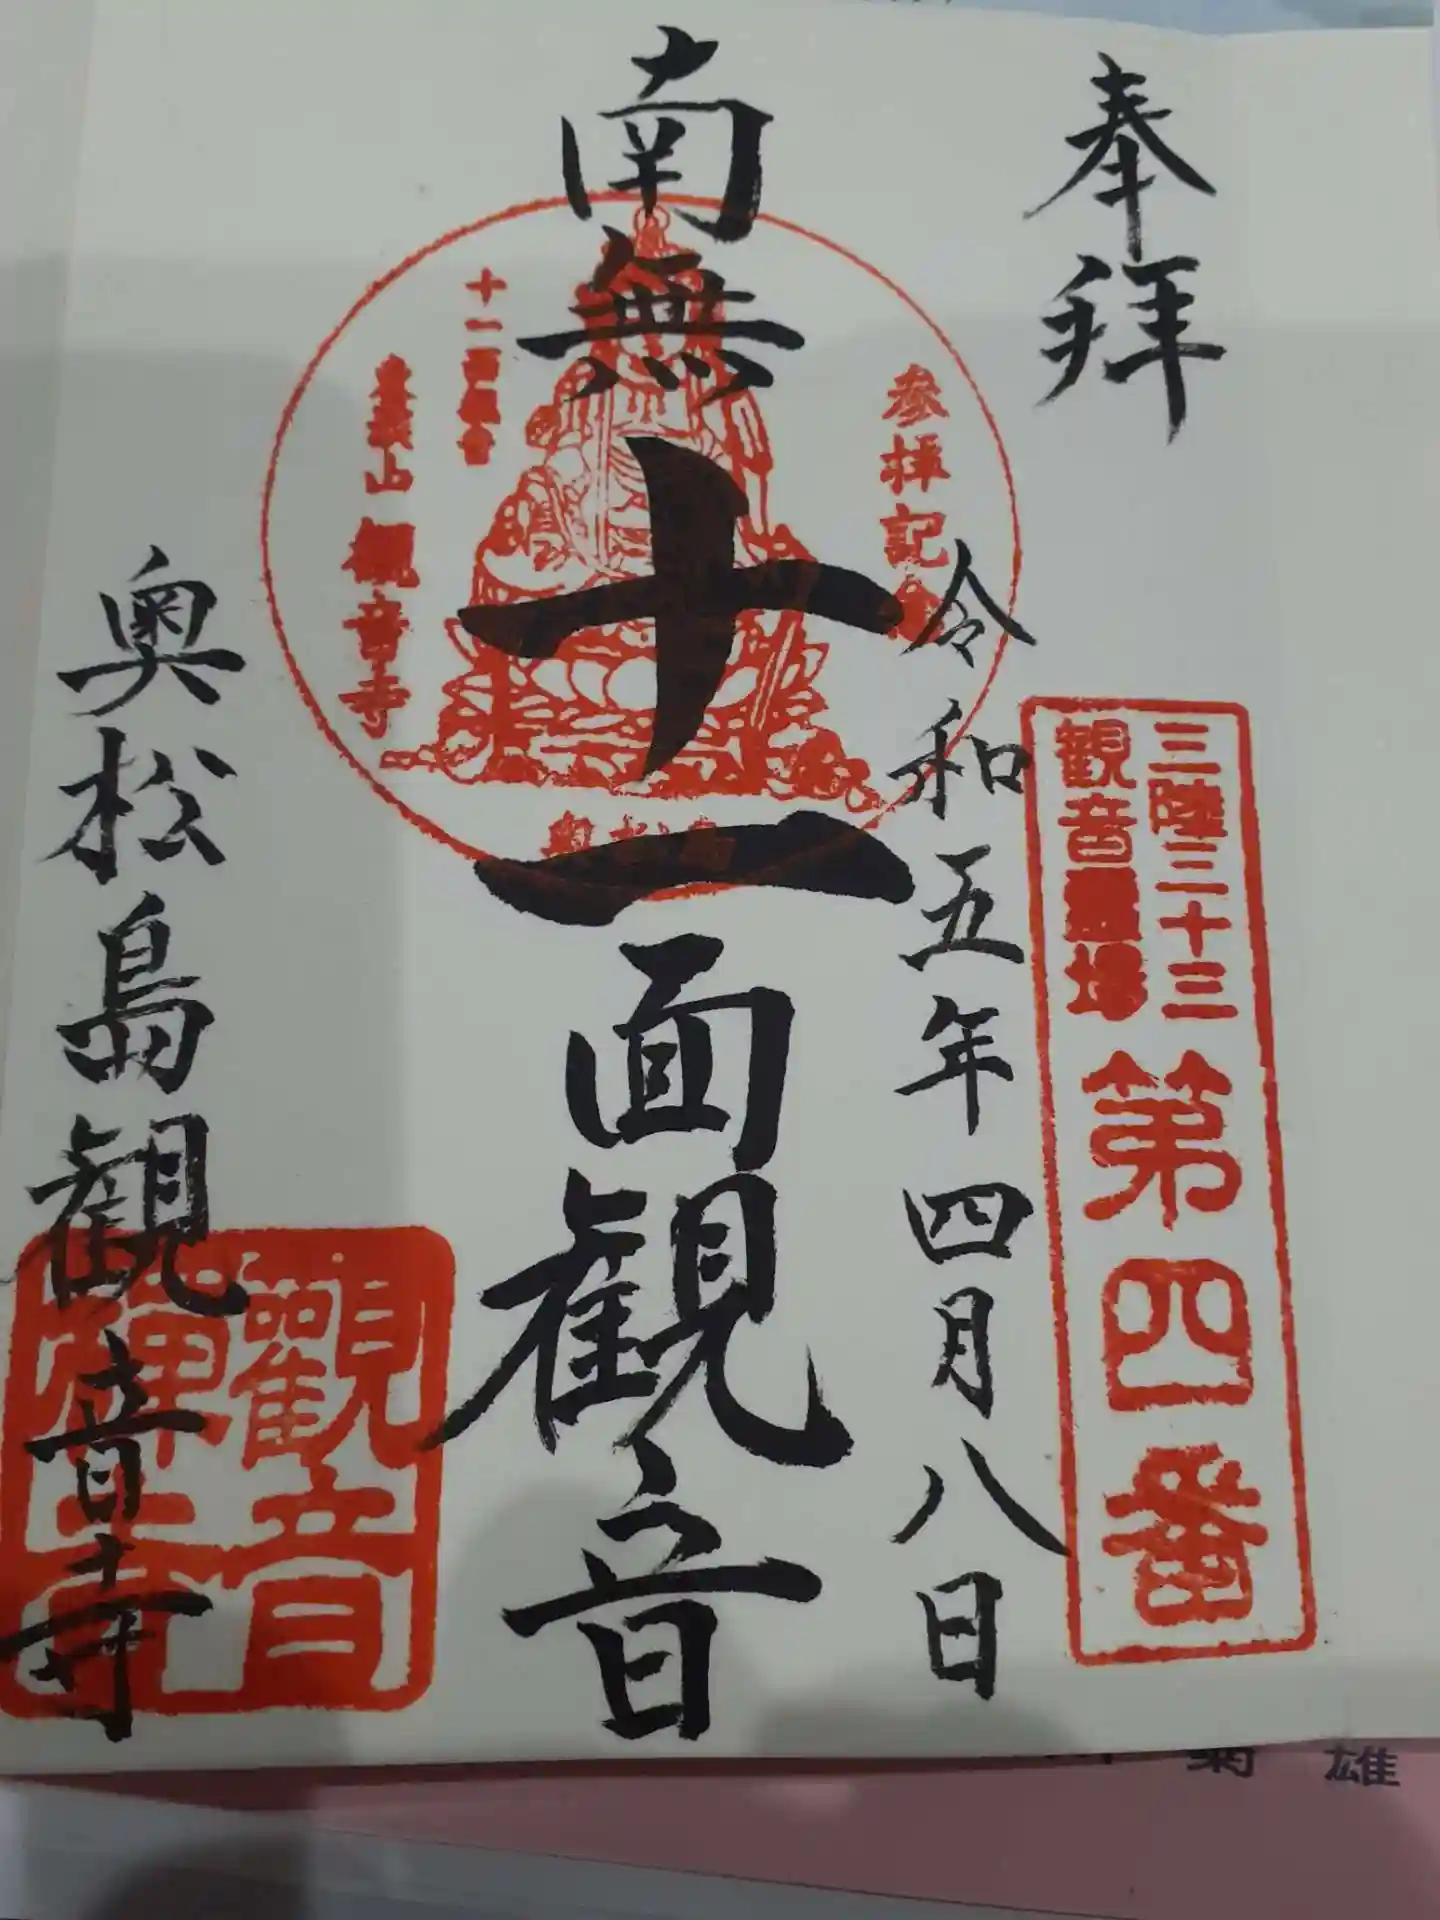 奉拝
三陸三十三
観音霊場
第四番
令和五年四月八日
参拝記念
南無十一面観音
十一面観音
山 観音寺
奥松島
奥松島観音寺
観音
禅寺
菊雄